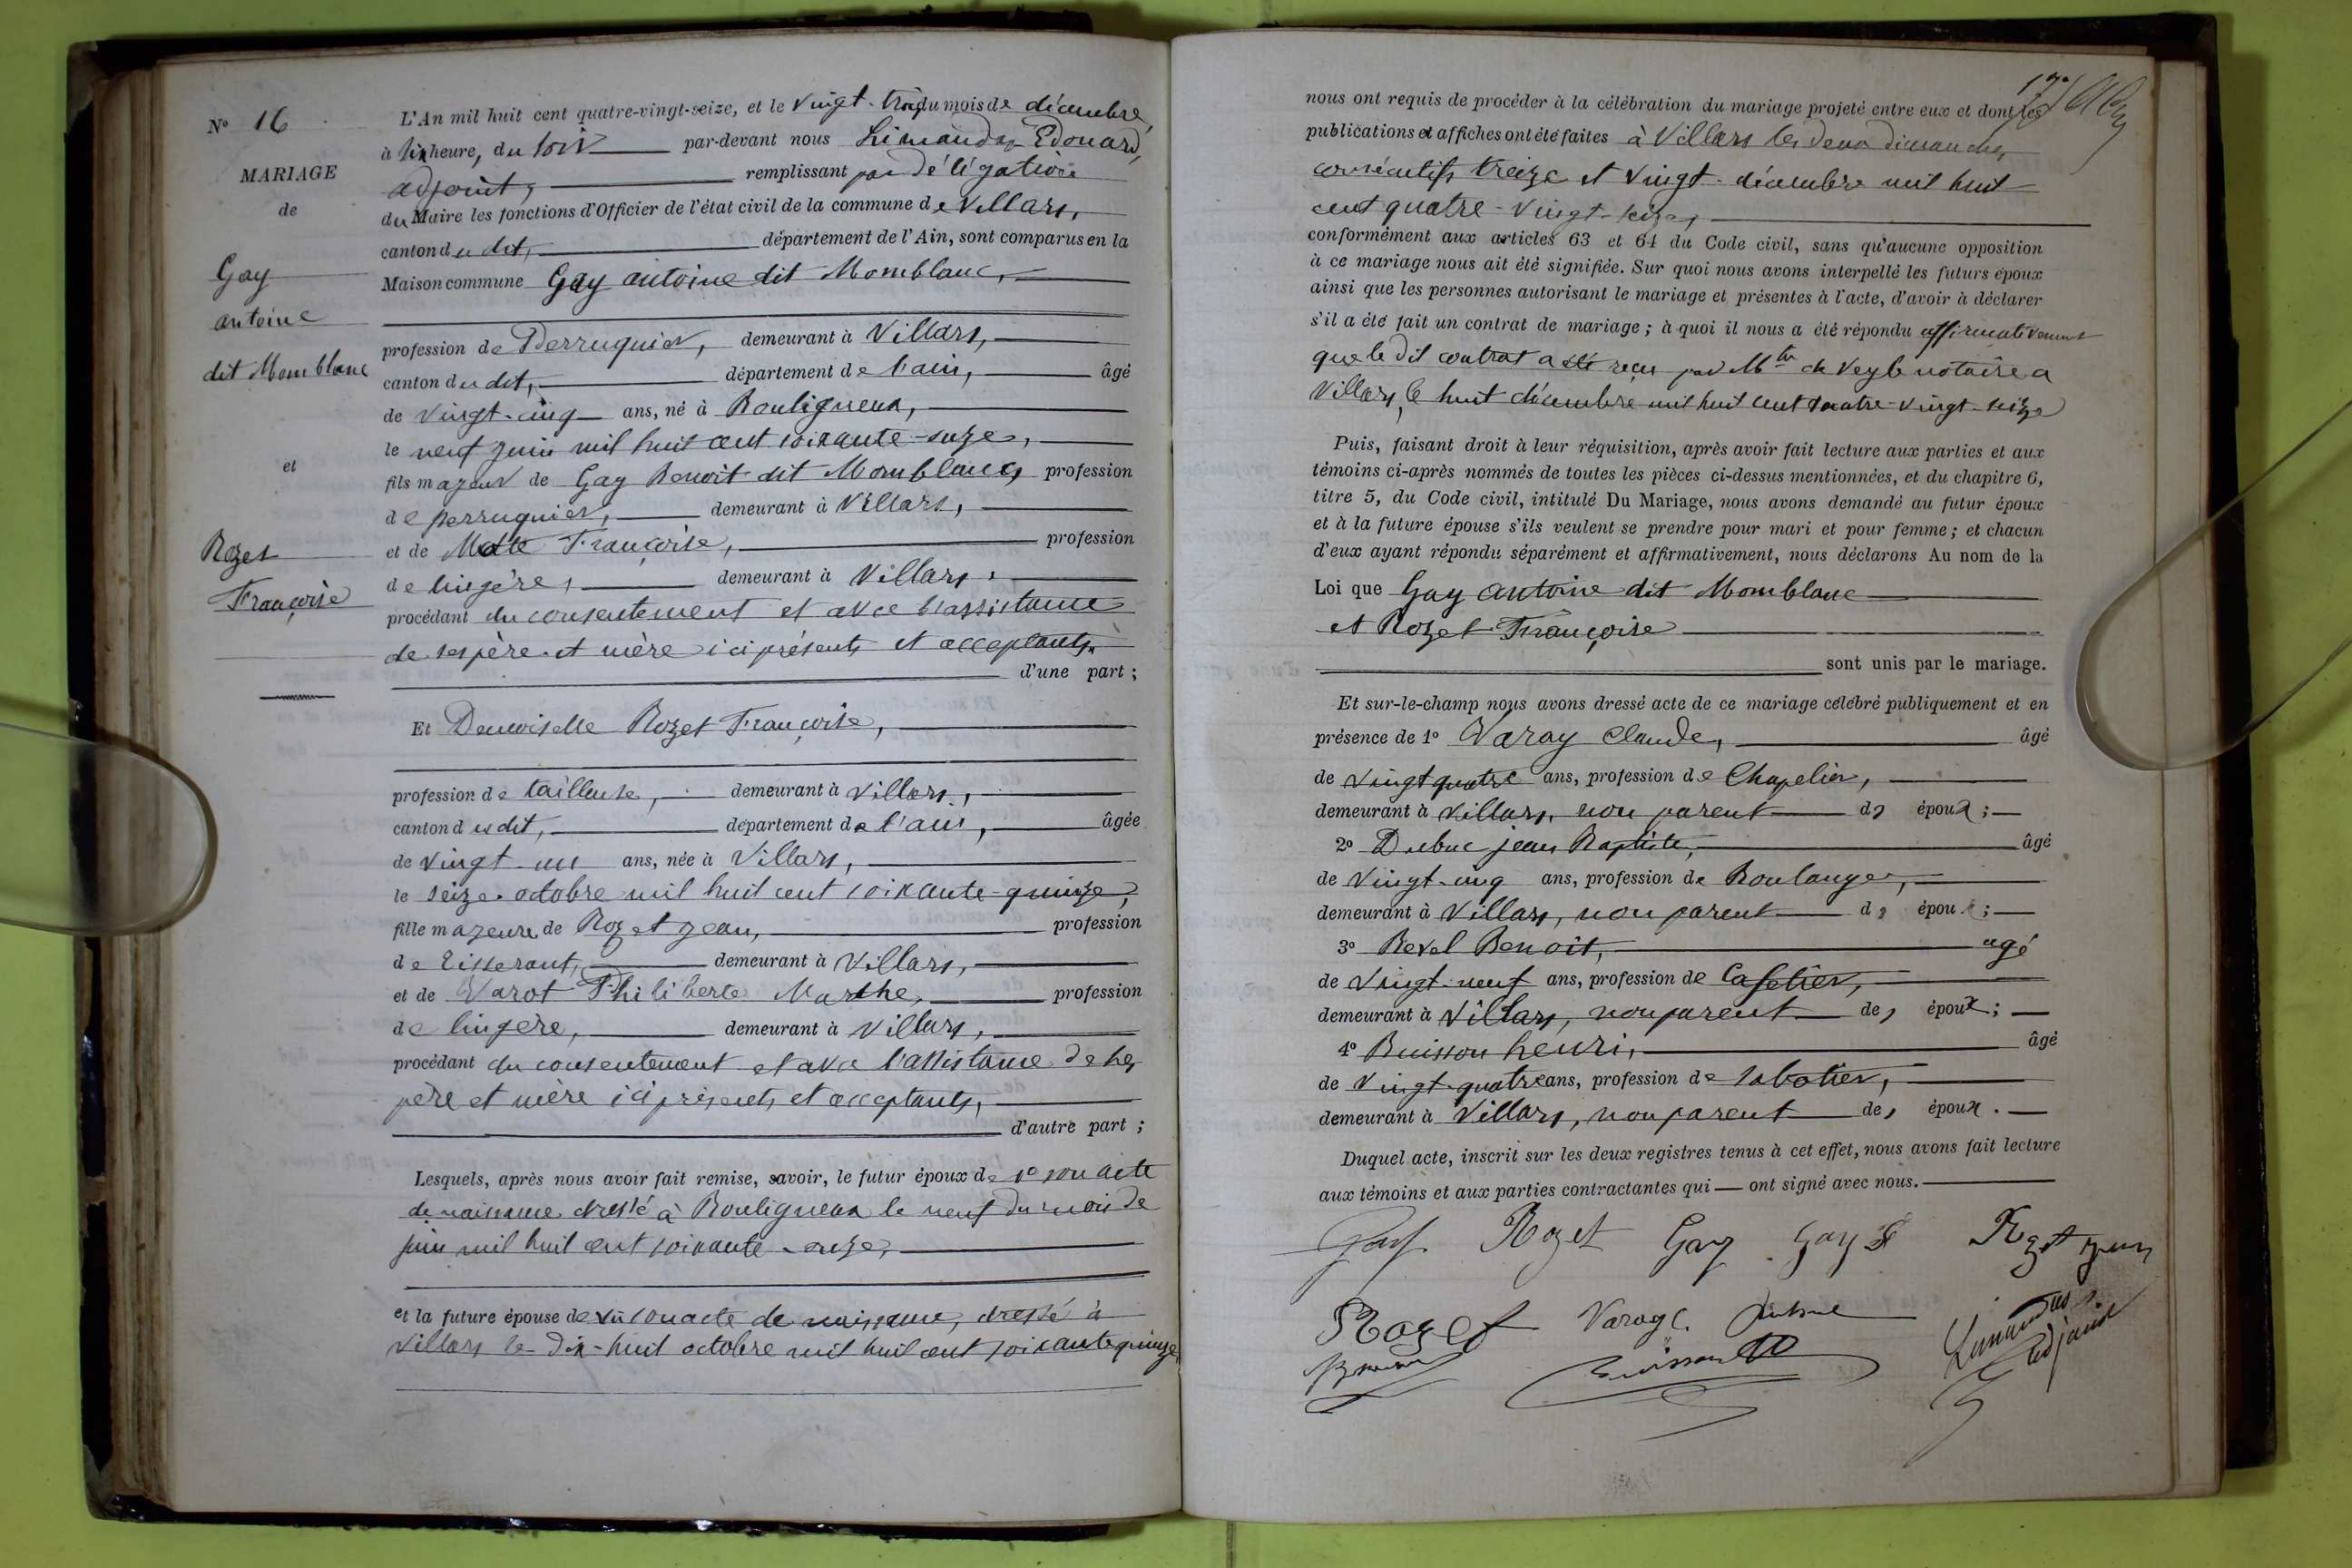 N° 16
MARIAGE
de
Gay
antoine
dit Momblanc
et
Rozet
Françoise
L'An mil huit cent quatre-vingt-seize, et le vingt-trois du mois de décembre,
à six heure, du soir par-devant nous Limandas Edouard,
adjoint, remplissant par délégation
du Maire les fonctions d'Officier de l'état civil de la commune de Villars,
canton du dit, département de l'Ain, sont comparus en la
Maison commune Gay antoine dit Momblanc,
profession de Perruquier, demeurant à Villars,
canton du dit, département de l'ain, âgé
de vingt-cinq ans, né à Bouligneux,
le neuf juin mil huit cent soixante-onze,
fils majeur de Gay Benoit dit Momblanc, profession
de perruquier, demeurant à Villars,
et de Motte Françoise, profession
de lingère, demeurant à Villars,
procédant du consentement et avec l'assistance
de ses père et mère ici présents et acceptants,
d'une part ;
Et Demoiselle Rozet Françoise,
profession de tailleuse, demeurant à Villars,
canton du dit, département de l'ain, âgée
de vingt-un ans, née à Villars,
le seize octobre mil huit cent soixante-quinze,
fille majeure de Rozet Jean, profession
de Tisserant, demeurant à Villars,
et de Varot Philiberte Marthe, profession
de lingère, demeurant à Villars,
procédant du consentement et avec l'assistance de ses
père et mère ici présents et acceptants,
d'autre part ;
Lesquels, après nous avoir fait remise, savoir, le futur époux de 1° son acte
de naissance dressé à Bouligneux le neuf du mois de
juin mil huit cent soixante-onze,
et la future épouse de son acte de naissance, dressé à
Villars le dix-huit octobre mil huit cent soixante quinze,
17
nous ont requis de procéder à la célébration du mariage projeté entre eux et dont les
publications et affiches ont été faites à Villars les deux dimanches
consécutifs treize et vingt décembre mil huit
cent quatre-vingt-seize,
conformément aux articles 63 et 64 du Code civil, sans qu'aucune opposition
à ce mariage nous ait été signifiée. Sur quoi nous avons interpellé les futurs époux
ainsi que les personnes autorisant le mariage et présentes à l'acte, d'avoir à déclarer
s'il a été fait un contrat de mariage ; à quoi il nous a été répondu affirmativement
que le dit contrat a été reçu par Mtre de Veyle notaire a
Villars, le huit décembre mil huit cent quatre-vingt-seize
Puis, faisant droit à leur réquisition, après avoir fait lecture aux parties et aux
témoins ci-après nommés de toutes les pièces ci-dessus mentionnées, et du chapitre 6,
titre 5, du Code civil, intitulé Du Mariage, nous avons demandé au futur époux
et à la future épouse s'ils veulent se prendre pour mari et pour femme ; et chacun
d'eux ayant répondu séparément et affirmativement, nous déclarons Au nom de la
Loi que Gay antoine dit Momblanc
et Rozet Françoise
sont unis par le mariage.
Et sur-le-champ nous avons dressé acte de ce mariage célébré publiquement et en
présence de 1° Varay Claude, âgé
de vingt quatre ans, profession de Chapelier,
demeurant à Villars, non parent des époux ;
2° Dubuc jean Baptiste, âgé
de vingt-cinq ans, profession de Boulanger,
demeurant à Villars, non parent des époux ;
3° Revel Benoit, agé
de vingt-neuf ans, profession de Cafetier,
demeurant à Villars, non parent des époux ;
4° Buisson henri, âgé
de vingt-quatre ans, profession de sabotier,
demeurant à Villars, non parent des époux.
Duquel acte, inscrit sur les deux registres tenus à cet effet, nous avons fait lecture
aux témoins et aux parties contractantes qui ont signé avec nous.
Gay Rozet Gay Gay F Rozet jean
Rozet Varay C. Dubuc Limandas
Buisson adjoint